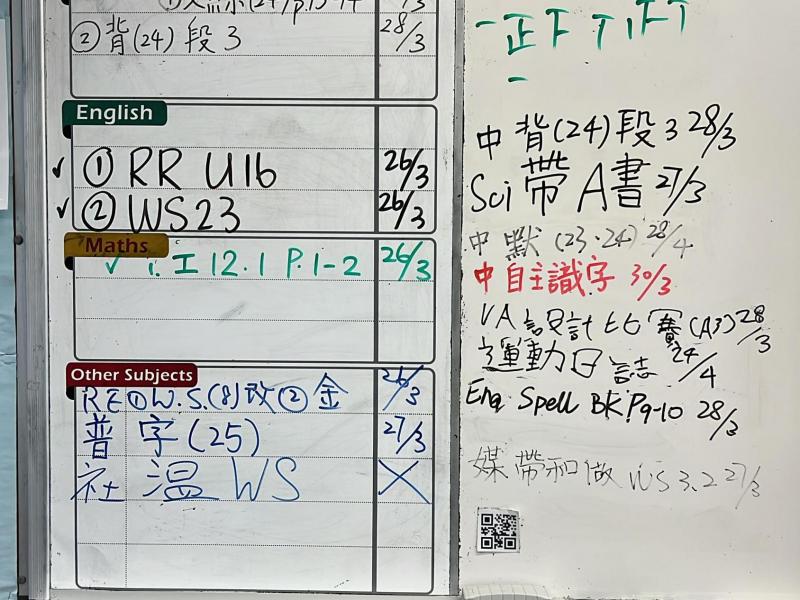 ② 背(24) 段 3 28/3
English
✓ ① RR U16 26/3
✓ ② WS23 26/3
Maths
✓ 1. 工 12.1 P.1-2 26/3
Other Subjects
RE ① W.S.(8)改 ② 金 26/3
普 字(25) 27/3
社 温 WS X
正 下 T 下 T
中 背(24) 段 3 28/3
Sci 帶 A書 27/3
中 默 (23.24) 28/4
中 自主識字 30/3
VA 設計比賽 (A3) 28/3
運動日誌 24/4
Eng Spell BK P.9-10 28/3
媒 帶和做 WS 3.2 27/3